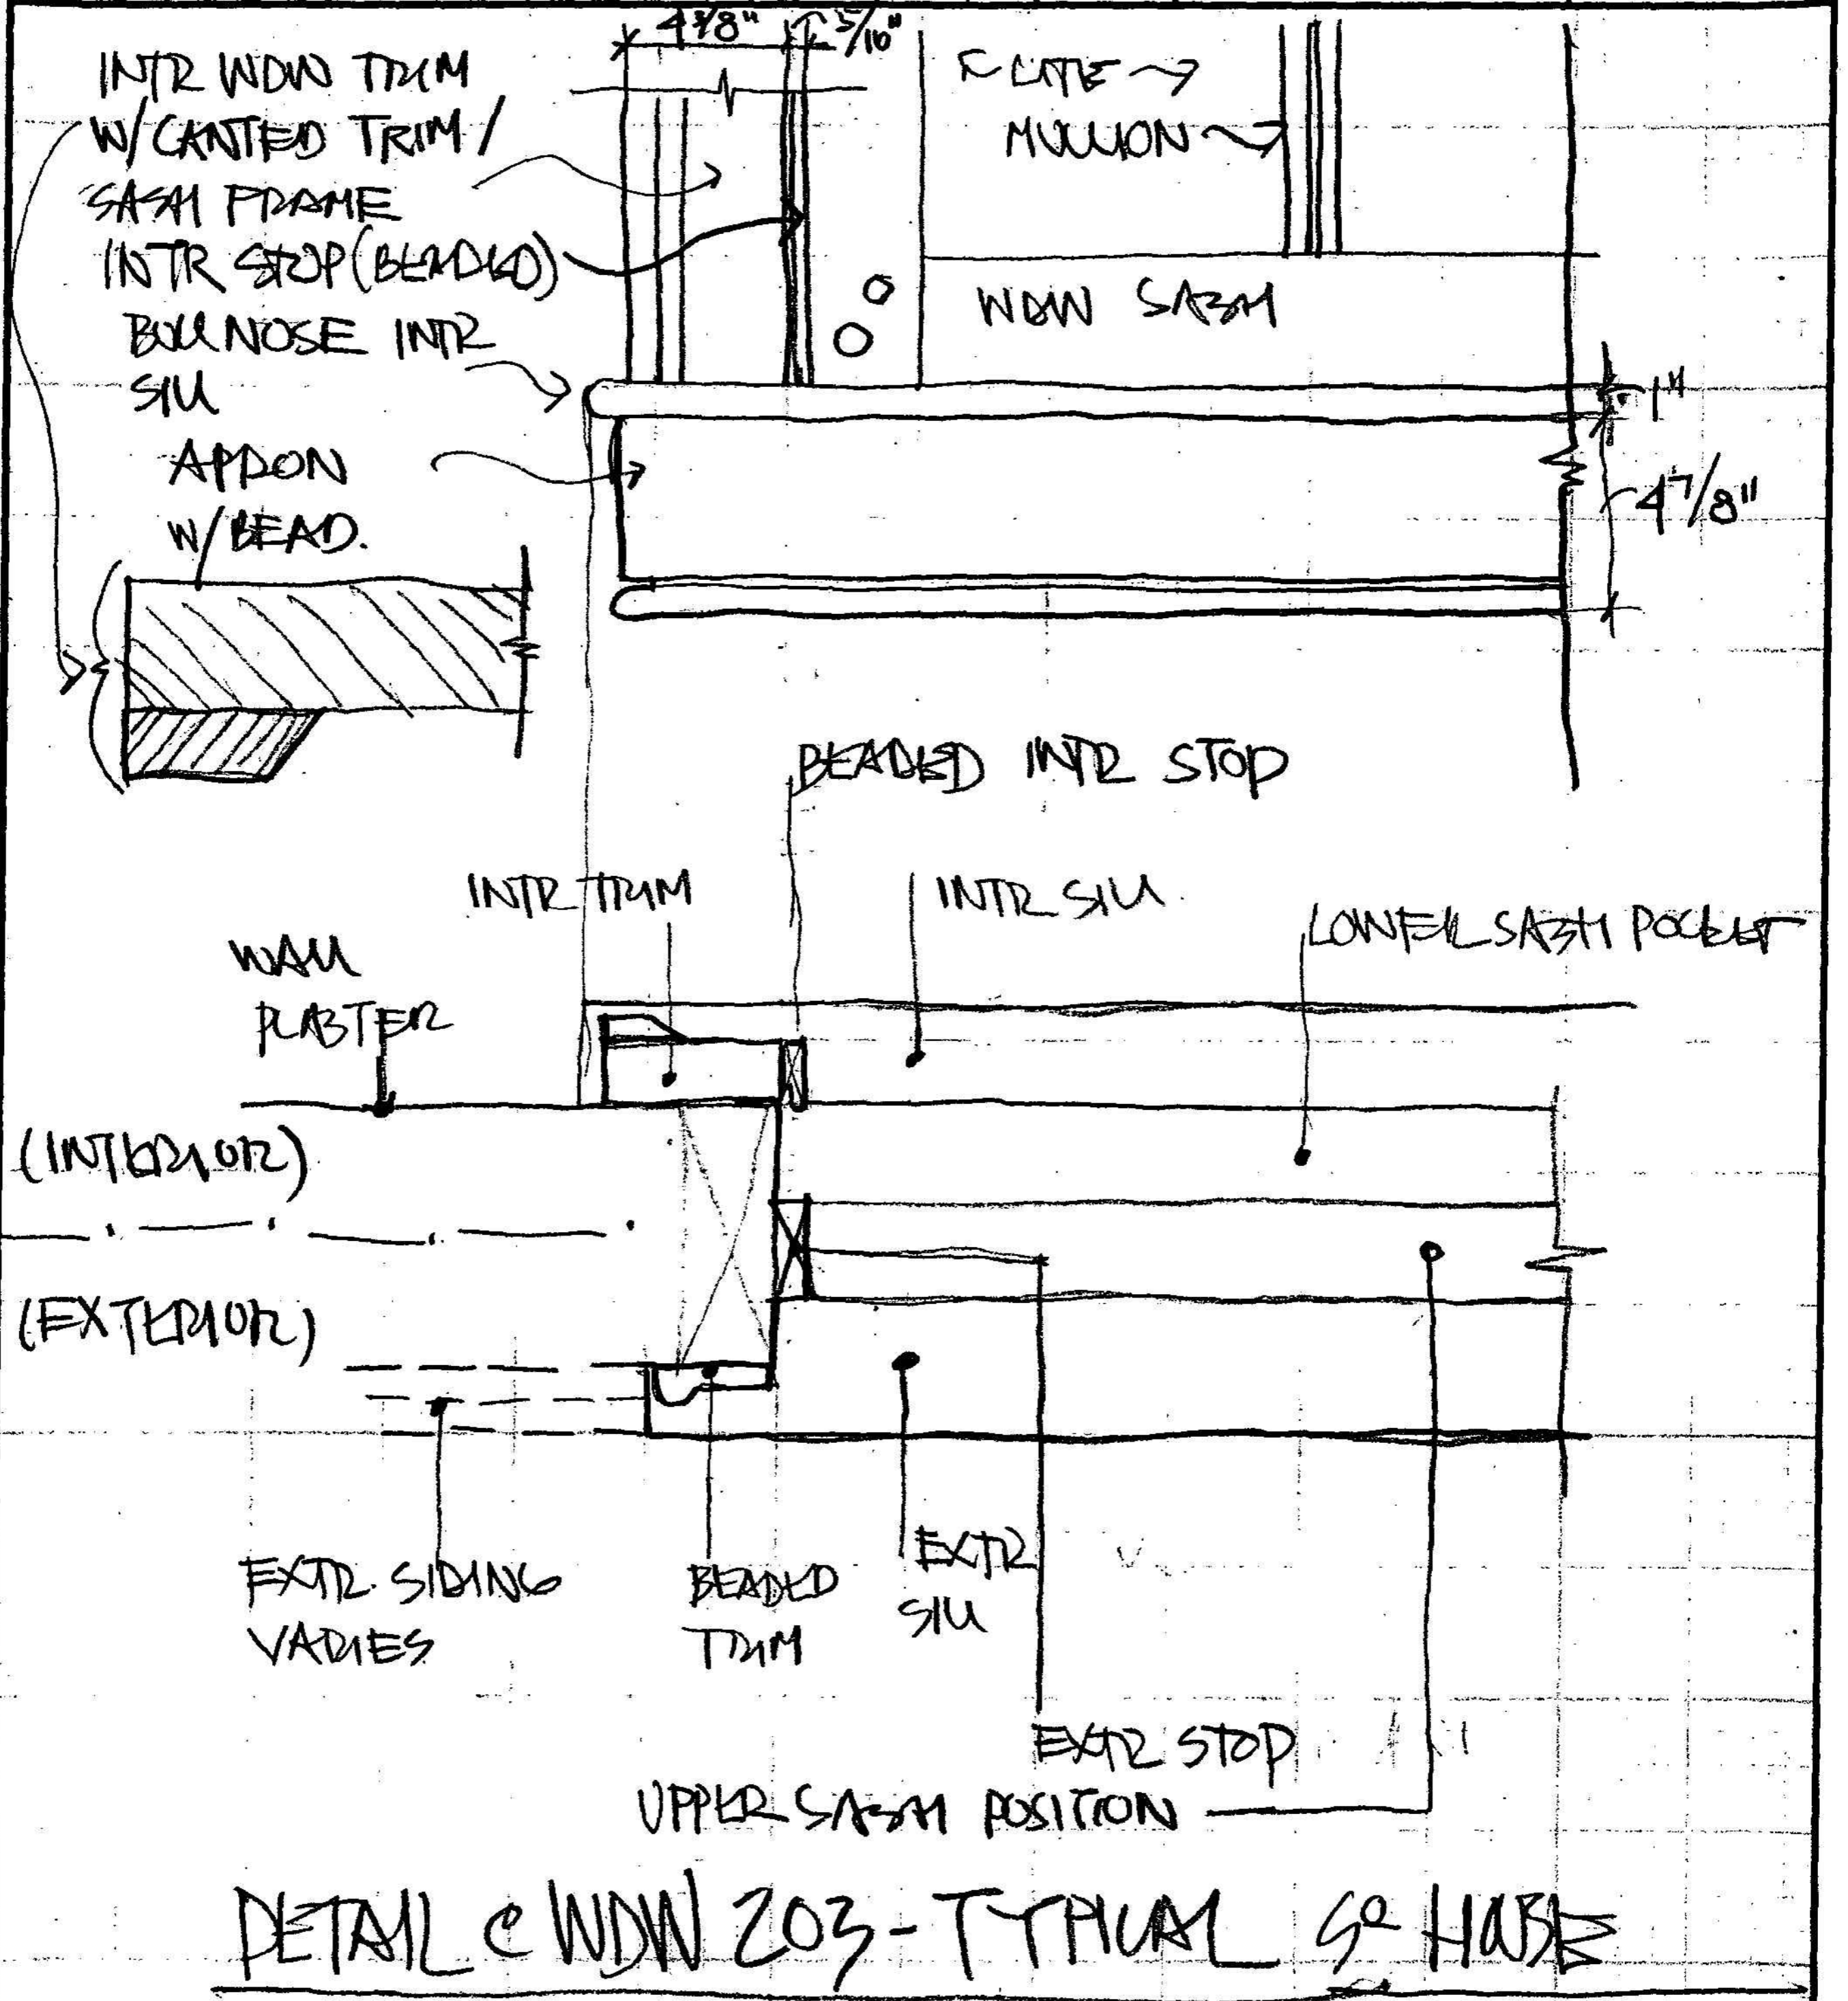 4 3/8"
5/16"
INTR WDW TRIM
W/ CANTED TRIM /
SASH FRAME
INTR STOP (BEADED)
BULLNOSE INTR
SILL
APRON
W/ BEAD.
LITE
MULLION
WDW SASH
1"
4 7/8"
BEADED INTR STOP
INTR TRIM
INTR SILL
LOWER SASH POCKET
WALL
PLASTER
(INTERIOR)
(EXTERIOR)
EXTR. SIDING
VARIES
BEADED
TRIM
EXTR
SILL
EXTR STOP
UPPER SASH POSITION
DETAIL @ WDW 203 - TYPICAL HOUSE